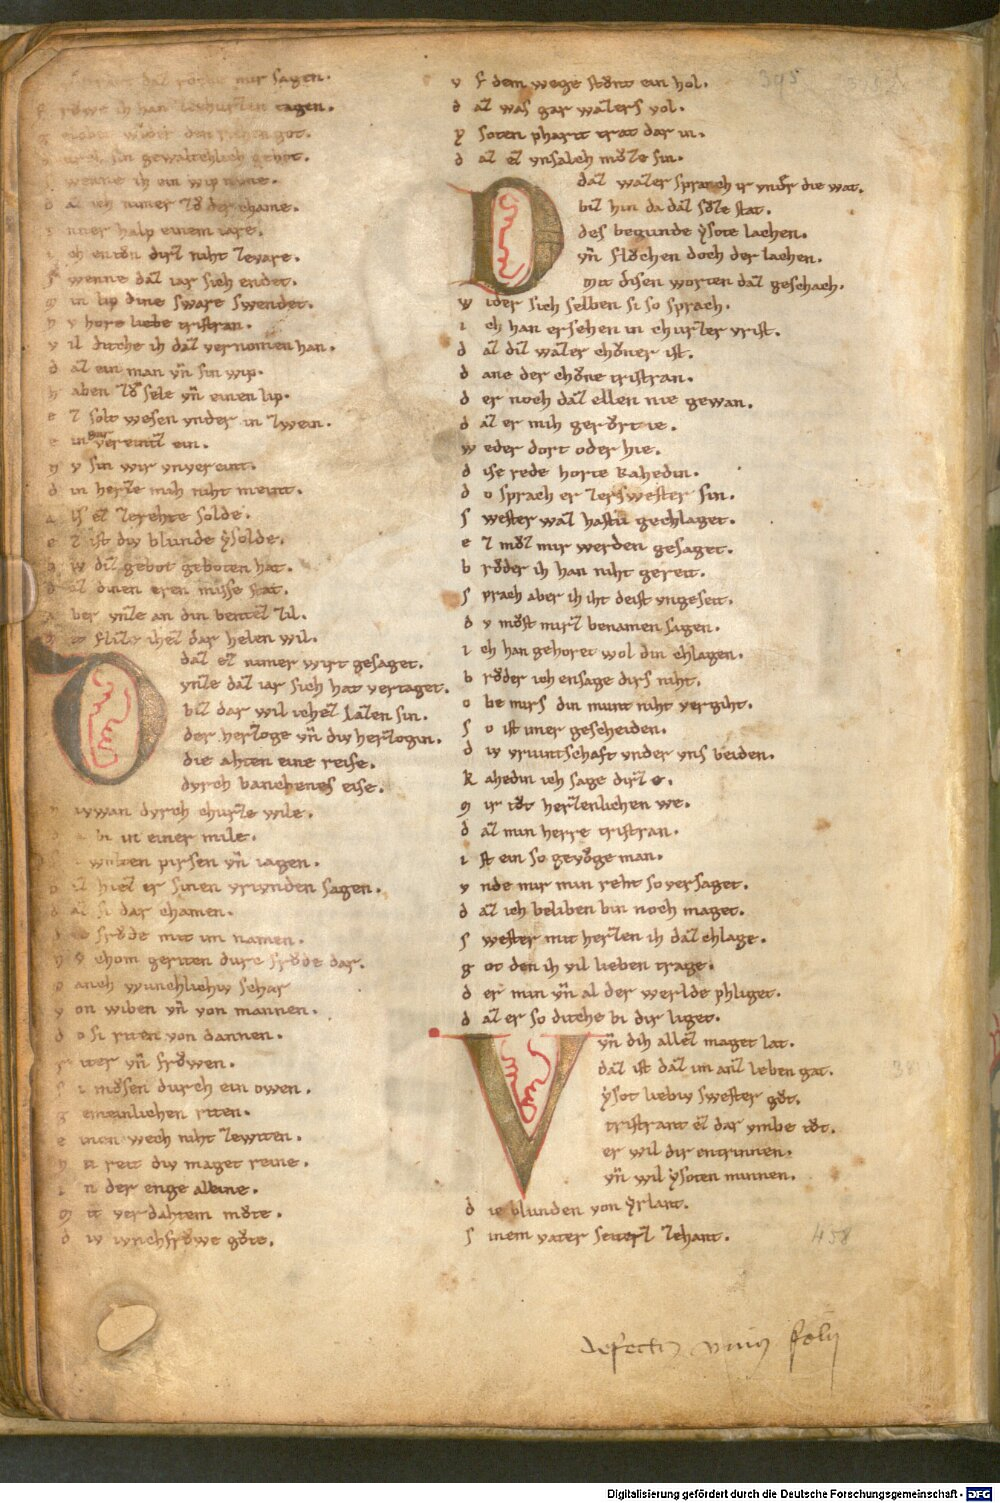 daz sol mir sagen.
frŏwe ih han chvrzlin tagen.
gelobet wider den richen got.
vnd sin gewaltchlich gebot.
swenne ih ein wip nime.
daz ich nimer zŏ der chame.
inner halp einem iare.
ich entŏn dirz niht zevare.
swenne daz iar sich endet.
min lip dine sware swendet.
nv hore liebe tristran.
vil diche ih daz vernomen han.
daz ein man vn̄ sin wip.
haben zŏ sele vn̄ einen lip.
ez solt wesen vnder in zwein.
ein gar vereintez ein.
nv sin wir vnvereint.
din herze mih niht meint.
als ez zerehte solde.
ez ist div blunde ẏsolde.
div diz gebot geboten hat.
daz dinen eren misse stat.
aber vnze an din bentez zil.
ihez dar helen wil.
O daz ez nimer wirt gesaget.
vnze daz iar sich hat vertaget.
biz dar wil ichez lazen sin.
der herzoge vn̄ div herzogin.
die ahten eine reise.
dvrch banchenes eise.
niwan dvrch churze wile.
bi in einer mile.
wolten pirsen vn̄ iagen.
daz hiez er sinen vrivnden sagen.
daz si dar chamen.
frŏde mit im namen.
nv chom geriten dure frŏde dar.
manch wunchlichiv schar
von wiben vn̄ von mannen.
do si riten von dannen.
riter vn̄ frŏwen.
si mŏsen durch ein owen.
gemeinlichen riten.
einen wech niht zewiten.
nv reit div maget reine.
in der enge alleine.
mit verdahtem mŏte.
div ivnchfrŏwe gŏte.
vf dem wege stŏnt ein hol.
daz was gar wazers vol.
ẏsoten phart trat dar in.
daz ez vnsalch mŏse sin.
D daz wazer sprach ir vnder die wat.
biz hin da daz sŏze stat.
des begunde ẏsote lachen.
vn̄ flŏchen doch der lachen.
mit disen worten daz geschach.
wider sich selben si so sprach.
ich han ersehen in churzer vrist.
daz diz wazer chŏner ist.
dane der chŏne tristran.
der noch daz ellen nie gewan.
daz er mih gerŏrt ie.
weder dort oder hie.
dise rede horte kahedin.
do sprach er zerswester sin.
swester waz hastu gechlaget.
ez mŏz mir werden gesaget.
brŏder ih han niht gereit.
sprach aber ih iht deist vngeseit.
dv mŏst mirz benamen sagen.
ich han gehoret wol din chlagen.
brŏder ich ensage dirs niht.
obe mirs din munt niht vergiht.
so ist imer gescheiden.
div vriuntschaft vnder vns beiden.
kahedin ich sage dirz e.
mir tŏt herzenlichen we.
daz min herre tristran.
ist ein so gevŏge man.
vnde mir min reht so versaget.
daz ich beliben bin noch maget.
swester mit herzen ih daz chlage.
got den ih vil lieben trage.
der min vn̄ al der werlde phliget.
daz er so diche bi dir liget.
V vn̄ dih allez maget lat.
daz ist daz im aniz leben gat.
ẏsot liebiv swester gŏt.
tristrant ez dar vmbe tŏt.
er wil dir entrinnen.
vn̄ wil ẏsoten minnen.
die blunden von ẏrlant.
sinem vater seiterz zehant.
458
defectus unius folii
Digitalisierung gefördert durch die Deutsche Forschungsgemeinschaft - DFG